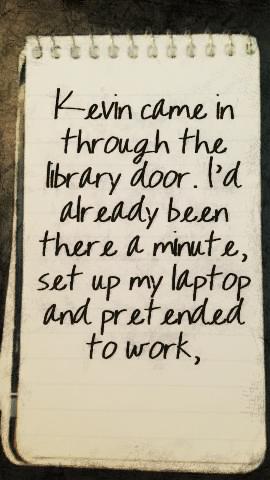 Kevin came in
through the
library door. I'd
already been
there a minute,
set up my laptop
and pretended
to work,